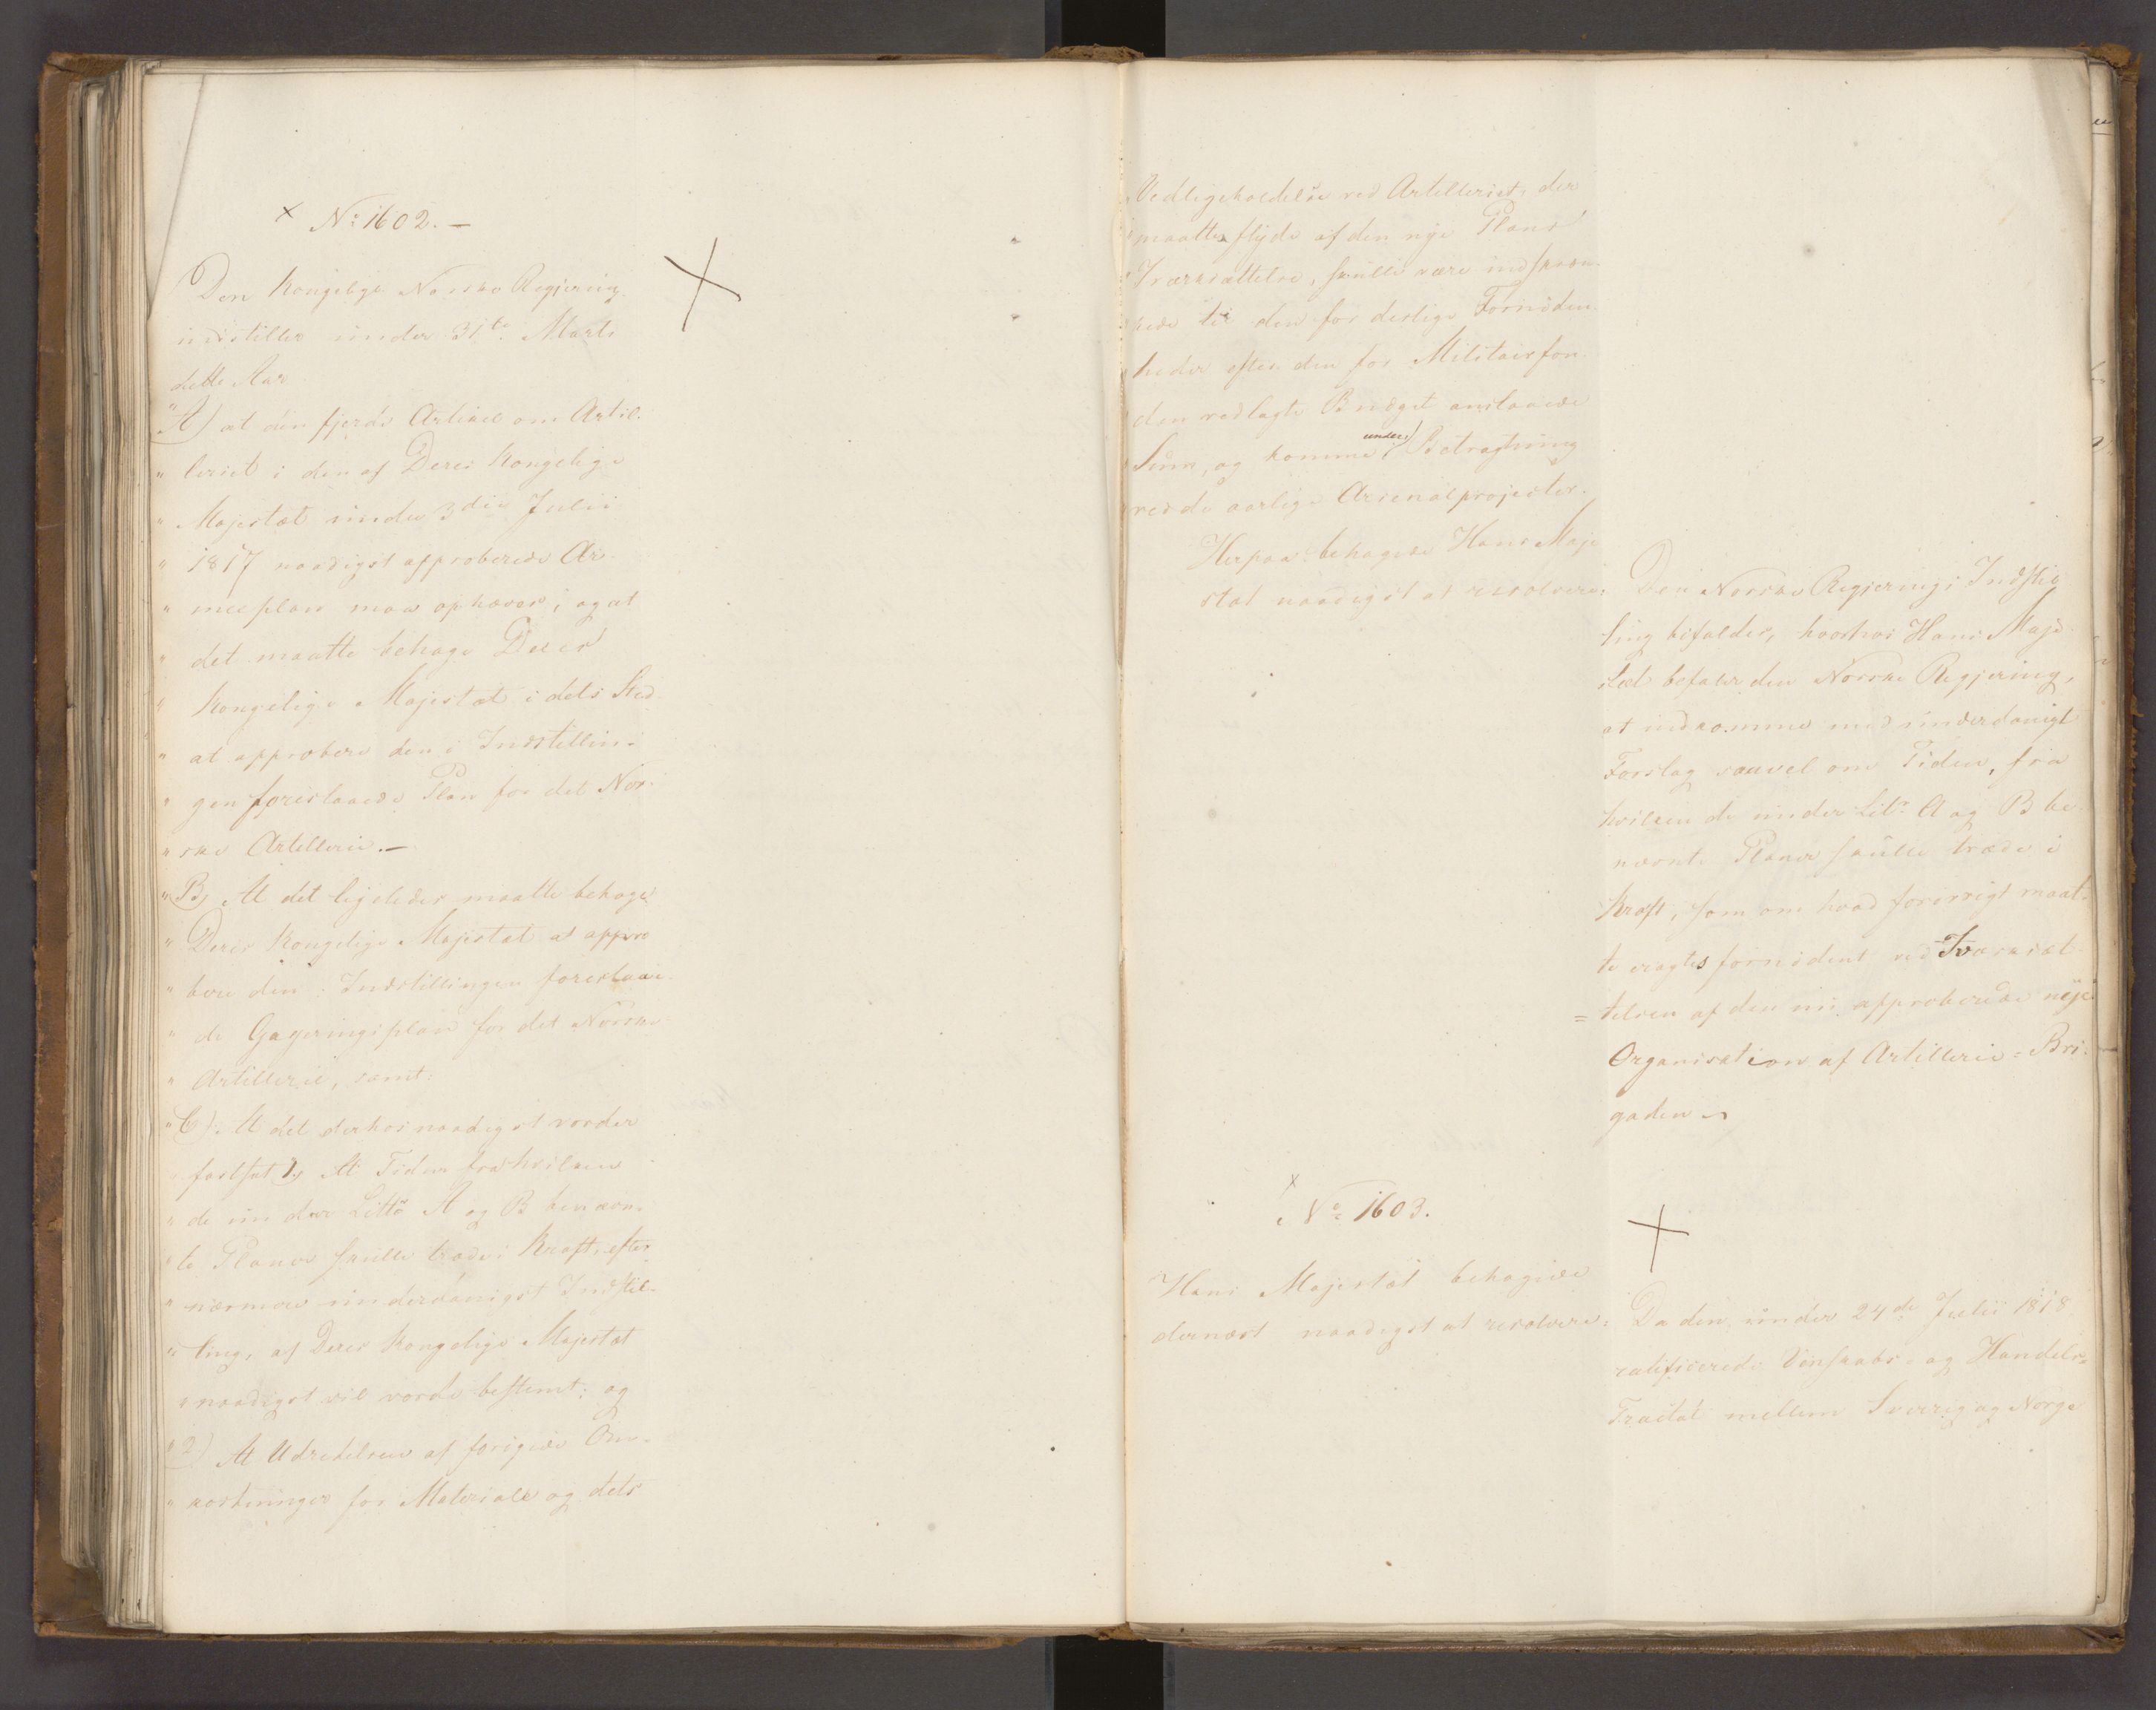 × No: 1602. –
Den Kongelige Norske Regjering
indstiller under 31te Marts
dette Aar
"A) at den fjerde Artikel om Artil-
" leriet i den af Deres Kongelige
" Majestæt under 3die Julii
" 1817 naadigst approberede Ar-
" meeplan maa ophæves; og at
" det maatte behage Deres
" Kongelige Majestæt i dets Sted
" at approbere den i Indstillin-
" gen foreslaaede Plan for det Nor-
" ske Artillerie. –
"B, At det ligeledes maatte behage
" Deres Kongelige Majestæt at appro
" bere den i Indstillingen foreslaae-
" de Gageringsplan for det Norske
" Artillerie, samt:
"C) At det derhos naadigst vorder
" fastsat 1, At Tiden fra hvilken
" de under Littr A og B benævn-
" te Planer skulle træde i Kraft, efter
" nærmere underdanigst Indstil-
" ling, af Deres Kongelige Majestæt
" naadigst vil vorde bestemt; og
"2) At Udredelsen af forøgede Om-
" kostninger for Materialet og dets
" Vedligeholdelse ved Artilleriet, der
" maatte flyde af den nye Plans
" Iværksættelse, skulle være indskræn-
" kede til den for deslige Fornøden-
" heder efter den for Militairfon-
" den vedlagte Budget anslaaede
" Sum, og komme under Betragtning
" ved de aarlige Arsenalprojecter.
Herpaa behagede Hans Maje
stæt naadigst at resolvere:
Den Norske Regjerings Indstil
ling bifaldes, hvorhos Hans Maje
stæt befaler den Norske Regjering,
at indkomme med underdanigt
Forslag saavel om Tiden, fra
hvilken de under Litr. A og B be-
nævnte Planer skulle træde i
Kraft, som om hvad forøvrigt maat-
te eragtes fornødent ved Iværksæt-
= telsen af den nu approberede nye
Organisation af Artillerie-Bri-
gaden
× No: 1603.
Hans Majestæt behagede
dernæst naadigst at resolvere:
Da den under 24de Julii 1818
ratificerede Venskabs- og Handels-
Tractat mellem Sverig og Norge